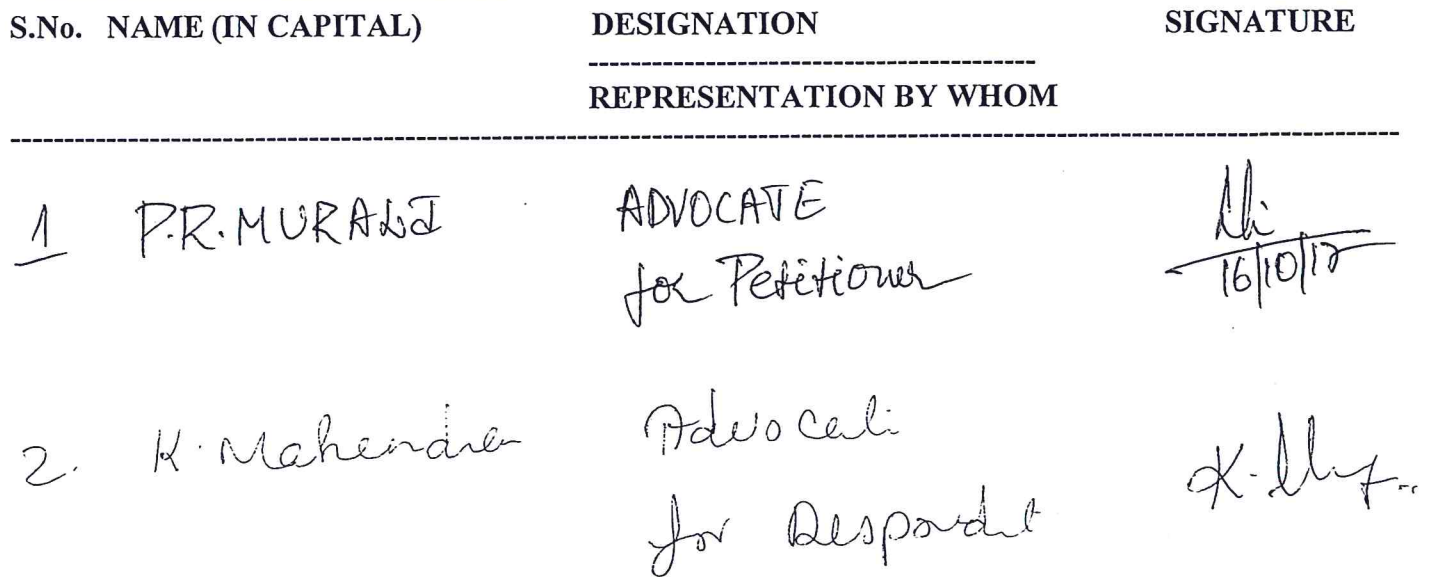 S.No. NAME (IN CAPITAL) DESIGNATION SIGNATURE
----------------------------------------
REPRESENTATION BY WHOM
----------------------------------------
1 P.R. MURALI ADVOCATE
for Petitioner 16/10/17
2. K. Mahendran Advocate
for Respondent K.